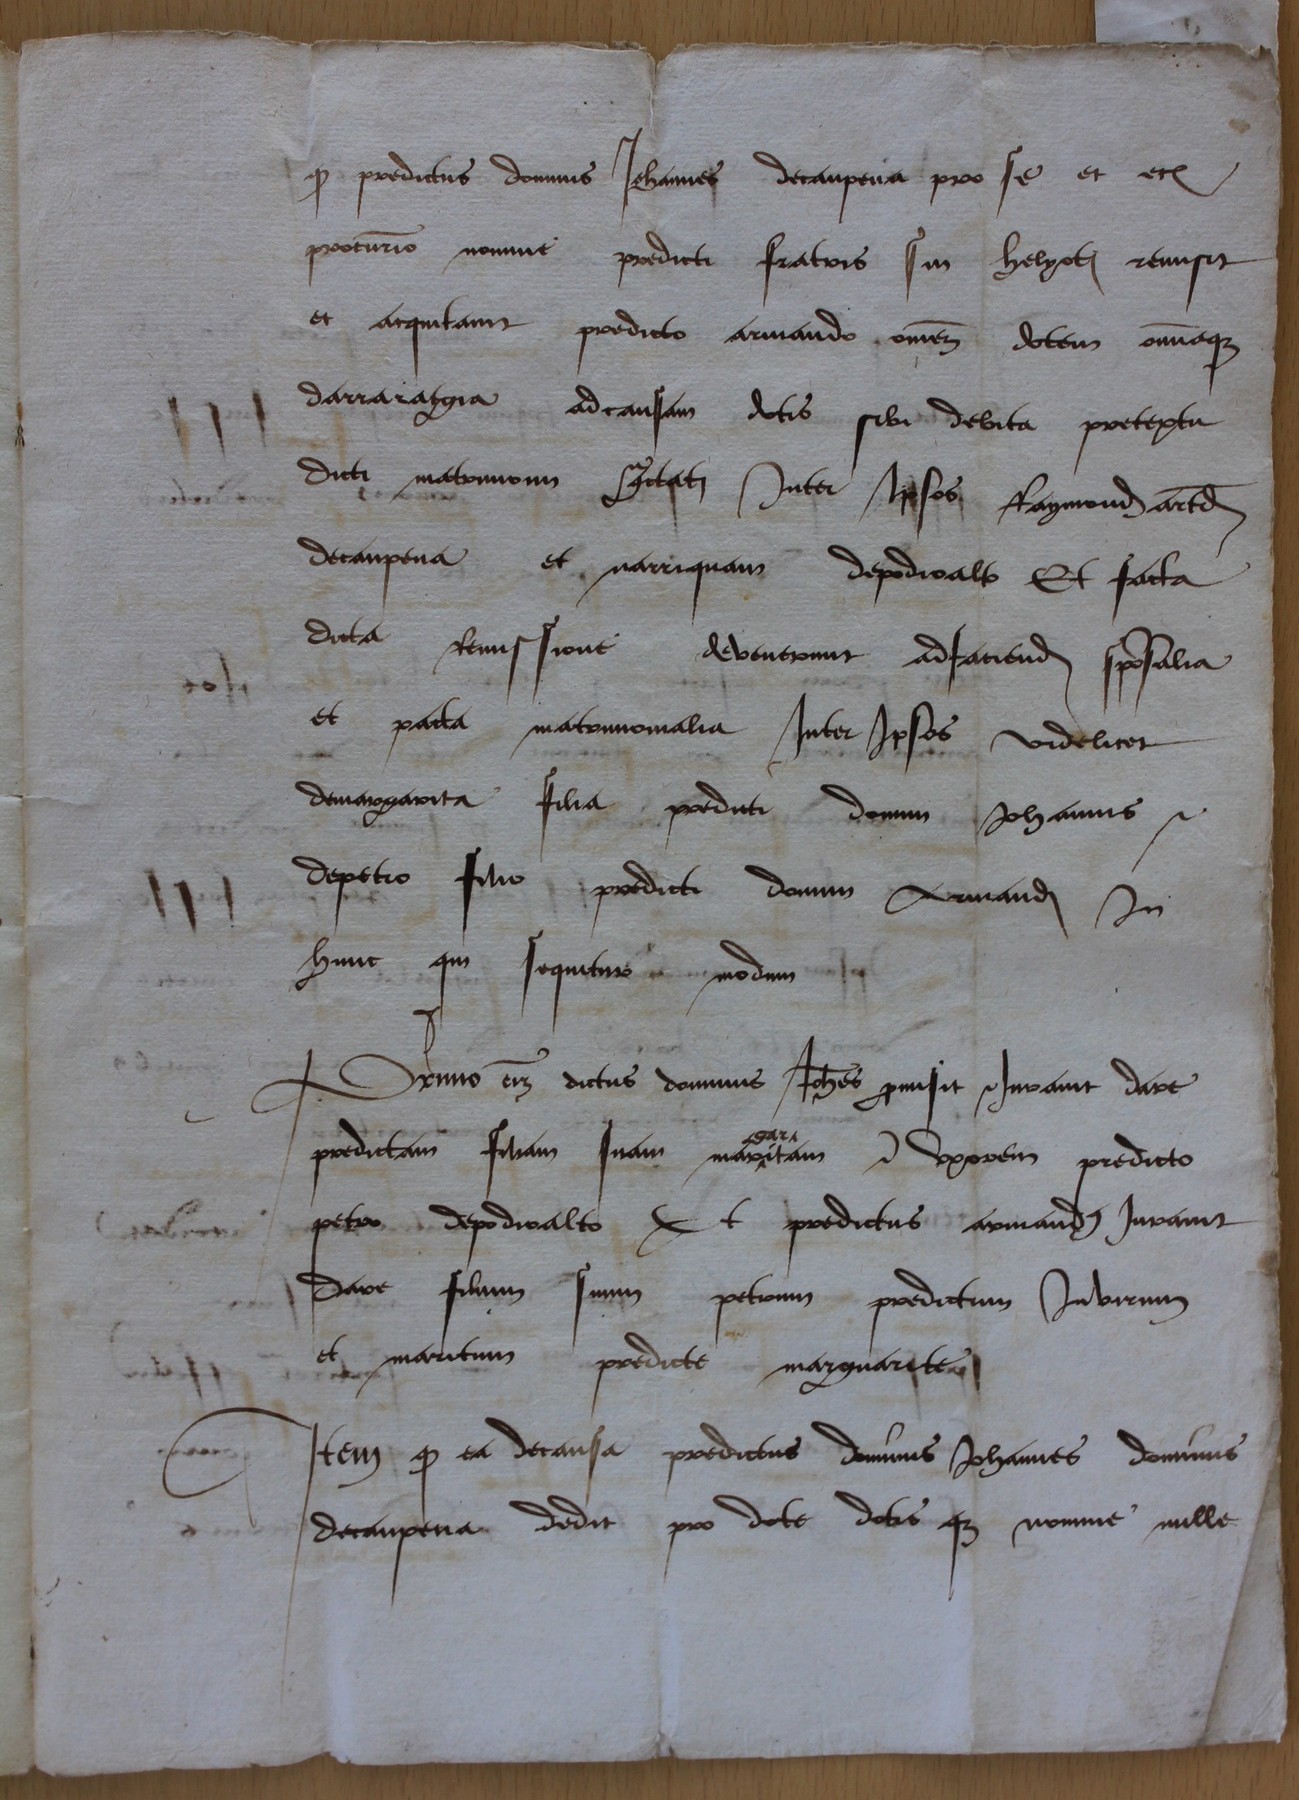 q predictus dominus Johannes decanpena pro se et etc
procurio nomine predicti fratris sui helyoti remisit
et acquitavit predicto armando omem dotem omniaq
darrarazgia ad causam dotis sibi debita pretextu
dicti matrimonii tctati Inter Ipsos Raymond artd
decanpena et narriquam depodioalto Et facta
dicta Remissione devenerunt ad faciend sposalia
et pacta matrimonialia Inter Ipsos videlicet
demargarita filia predicti domini Johannis
depetro filio predicti domini Armand In
hunc qui sequitur modum
Primo em dictus dominus Johes pmisit Juravit dare
predictam filiam suam margaritam I uxorem predicto
petro depodioalto Et predictus armand Juravit
Dare filium suum petrum predictum In virum
et maritum predicte marguarite
Item q ea de causa predictus dominus Johannes dominus
decanpena dedit pro dote dotis q nomine mille